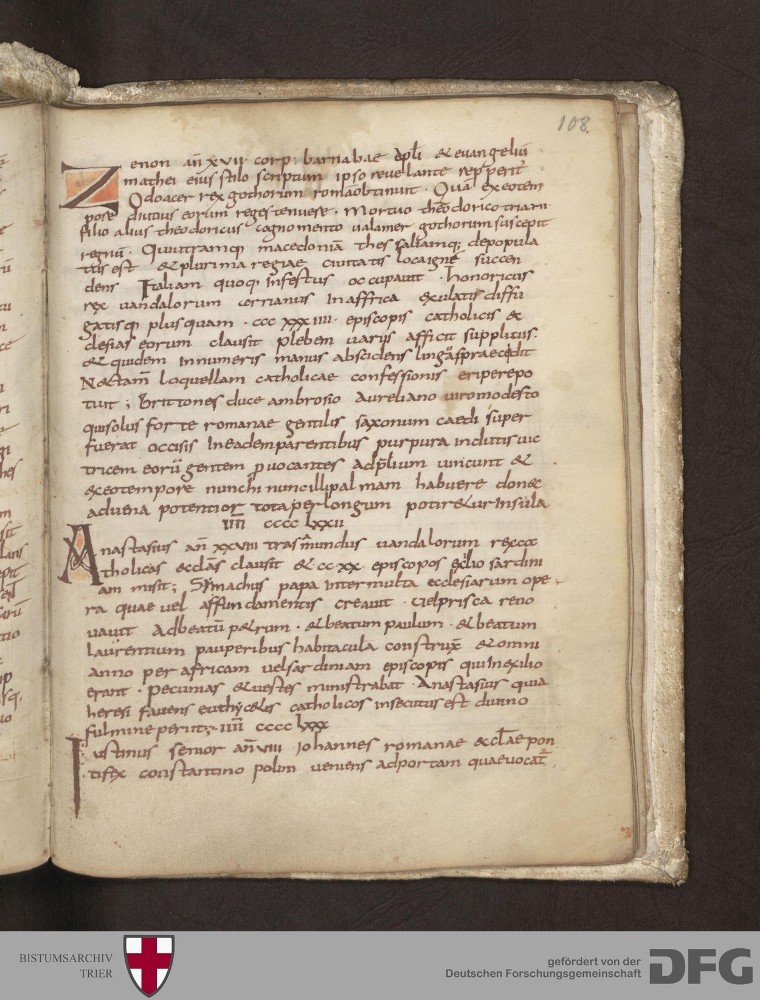 108
Zenon añ xvii· corp· barnabae apłi & evangeliū
mathei eius stilo scriptum ipso revellante repperit
Odoacer rex gothorum roma obtinuit · Quā ex eotem
pore diutius eorum reges tenuere · Mortuo theodorico triarii
filio alius theodoricus cognomento valamer gothorum suscepit
regnū · Qui utramq; macedoniā thessaliamq; depopula
tus est & plurima regiae civitatis loca igne succen
dens Italiam quoq; infestus occupavit · honoricus
rex vandalorum arrianus in affrica exulatis diffu
gatisq; plusquam · ccc xxxiiii · episcopis catholicis ec
clesias eorum clausit plebem variis affecit suppliciis·
& quidem innumeris manus abscidens linguas praecidit
Nec tam̄ loquellam catholicae confessionis eripere po
tuit ; Brittones duce ambrosio Aureliano viro modesto
qui solus forte romanae gentilis saxonum caedi super
fuerat occisis in eadem parentibus purpura indutis vic
tricem eorū gentem provocantes ad p̄lium vincunt &
ex eo tempore nunc hi nunc illi palmam habuere donec
advena potentior tota per longum potiretur insula
iiii cccc lxxii
Anastasius añ xxviii trasamundus vandalorum rex ca
tholicas eccl̄as clausit & cc xx episcopos exilio sardini
am misit ; Simachus papa inter multa ecclesiarum ope
ra quae vel a fundamentis creavit · vel prisca reno
vavit Ad beatū petrum · & beatum paulum · & beatum
laurentium pauperibus habitacula construx̄ & omni
anno per africam vel sardiniam episcopis qui in exilio
erant · pecunias & vestes ministrabat · Anastasius quia
heresi favens euthycetis catholicos insecutus est divino
fulmine periit ; iiii cccc lxxx
Iustinus senior añ viii iohannes romanae eccl̄ae pon
tifex constantinopolim veniens ad portam quae vocat̄
BISTUMSARCHIV
TRIER
gefördert von der
Deutschen Forschungsgemeinschaft
DFG